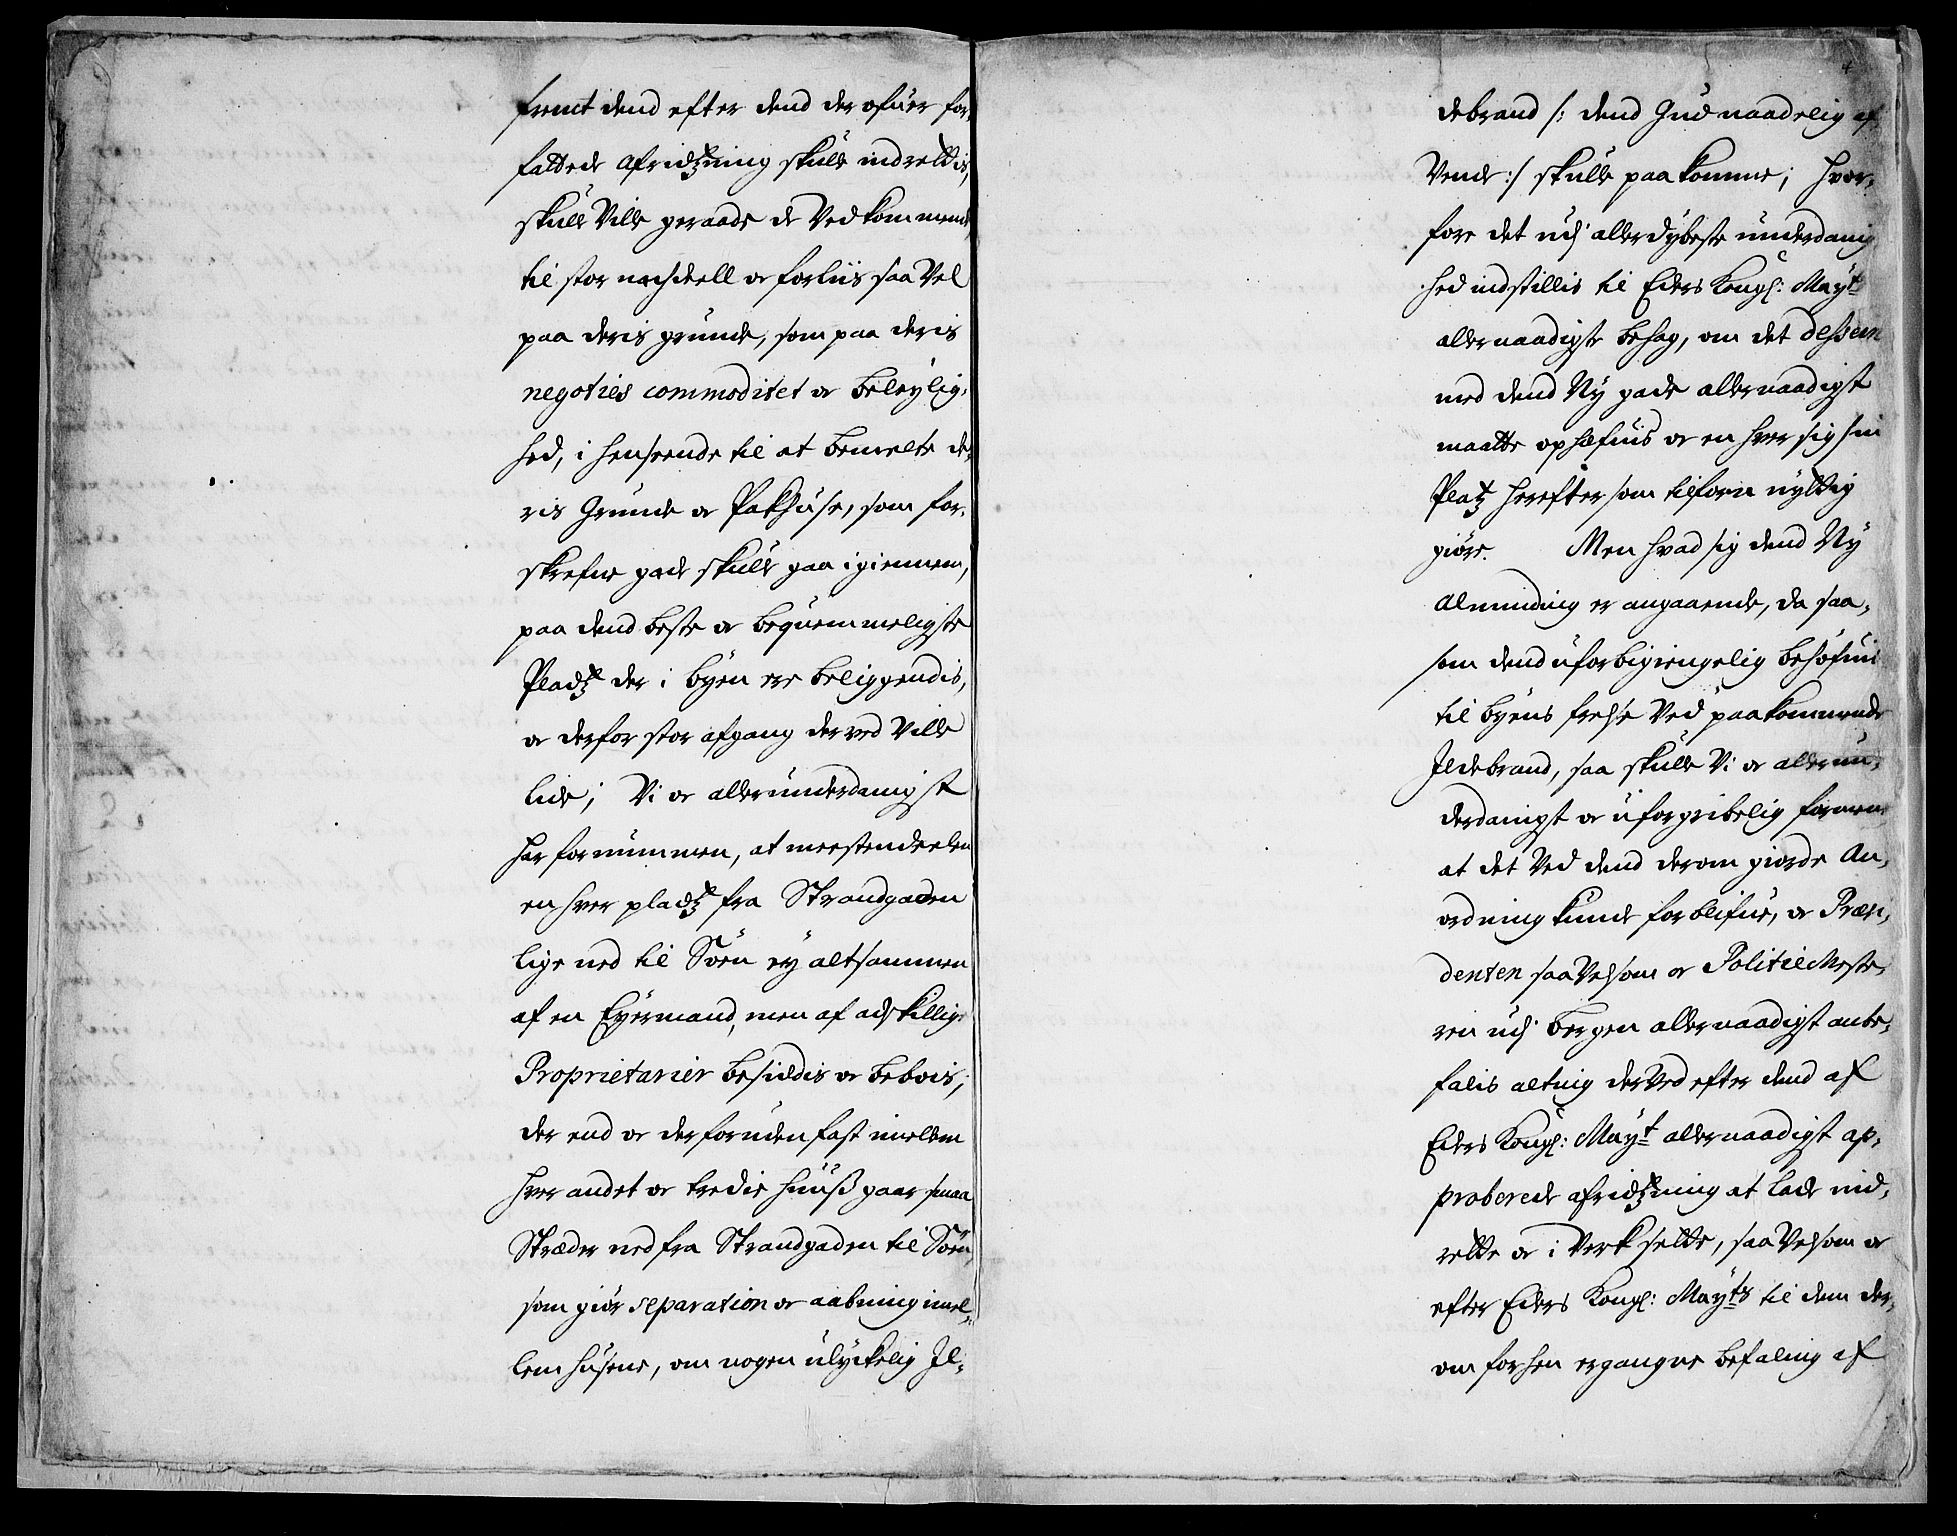 fremt dend efter dend der ofuer for-
fattede afridtzning skulle indrettis,
skulle Ville geraade de Vedkommende
til stor nachdeell oc forliis saa Vel
paa deris grunde, som paa deris
negoties commoditet oc beleylig-
hed, i henseende til at bemelte de-
ris Grunde oc Pakhuse, som for-
skrefne gade skulle gaa igiennem,
paa dend beste oc beqvemmeligste
Pladtz der i byen ere beliggendis,
oc derfor stor afgang derved Ville
lide; Vi oc allerunderdanigst
har fornummen, at meestendeelen
en hver pladtz fra Strandgaden
lige ned til Søen ey altsammen
af en Eyermand, men af adskillige
Proprietarier besiddis oc beboes;
der end oc derforuden fast imellem
hver andet oc tredie huuss gaar smaa
Stræder ned fra Strandgaden til Søen,
som giør separation oc aabning imel-
lem husene, om nogen ulyckelig Il-
debrand /: dend Gud naadelig af-
Vende :/ skulle paakomme; hvor-
fore det udj allerdybeste underdanig
hed indstillis til Eders Kongl: Mayts
allernaadigste behag, om det dessein
med dend Ny gade allernaadigst
maatte ophæfuis oc en hver sig sin
Platz herefter som tilforn nyttig
giøre. Men hvad sig dend Ny
Alminding er angaaende, da saa-
som dend uforbigiengelig behøfuis
til byens frelse Ved paakommende
Ildebrand, saa skulle Vi oc allerun-
derdanigst oc uforgribelig formene
at det Ved dend derom giorde An-
ordning kunde forblifue, oc Præsi-
denten saaVelsom oc PolitieMeste-
ren udj Bergen allernaadigst anbe-
falis alting derVed efter dend af
Eders Kongl: Mayt allernaadigst ap-
proberede afridtzning at lade ind-
rette oc i Verk sette, saaVelsom oc
efter Eders Kongl: Mayts til dem der-
om forhen ergangne befaling af